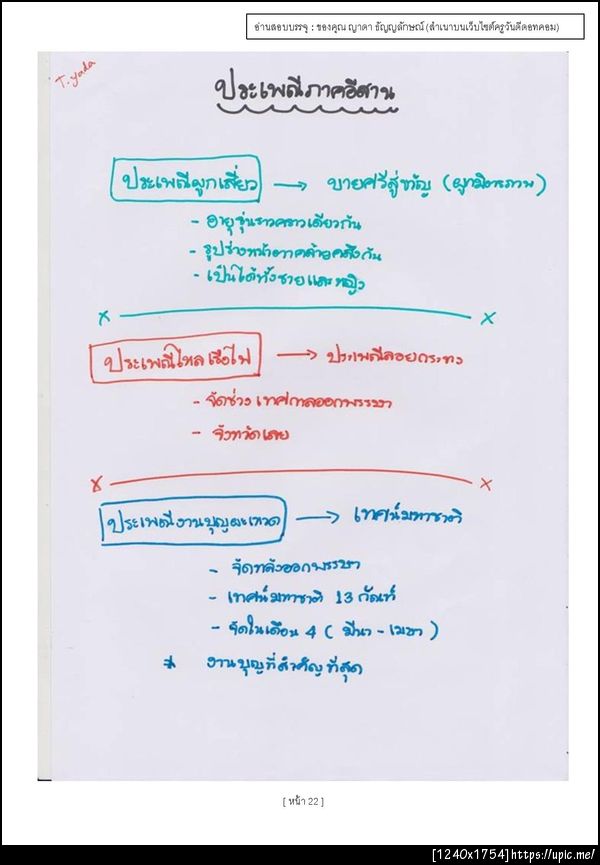 อ่านสอบบรรจุ : ของคุณ ญาดา ธัญญลักษณ์ (สำเนาบนเว็บไซต์ครูวันดีดอทคอม)
T.yada
ประเพณีภาคอีสาน
ประเพณีผูกเสี่ยว → บายศรีสู่ขวัญ (ผูกมิตรภาพ)
- อายุรุ่นราวคราวเดียวกัน
- รูปร่างหน้าตาคล้ายคลึงกัน
- เป็นได้ทั้งชายและหญิง
ประเพณีไหลเรือไฟ → ประเพณีลอยกระทง
- จัดช่วง เทศกาลออกพรรษา
- จังหวัดเลย
ประเพณีงานบุญผะเหวด → เทศน์มหาชาติ
- จัดหลังออกพรรษา
- เทศน์มหาชาติ 13 กัณฑ์
- จัดในเดือน 4 ( มีนา - เมษา )
* งานบุญที่สำคัญที่สุด
[ หน้า 22 ]
[1240x1754]https://upic.me/